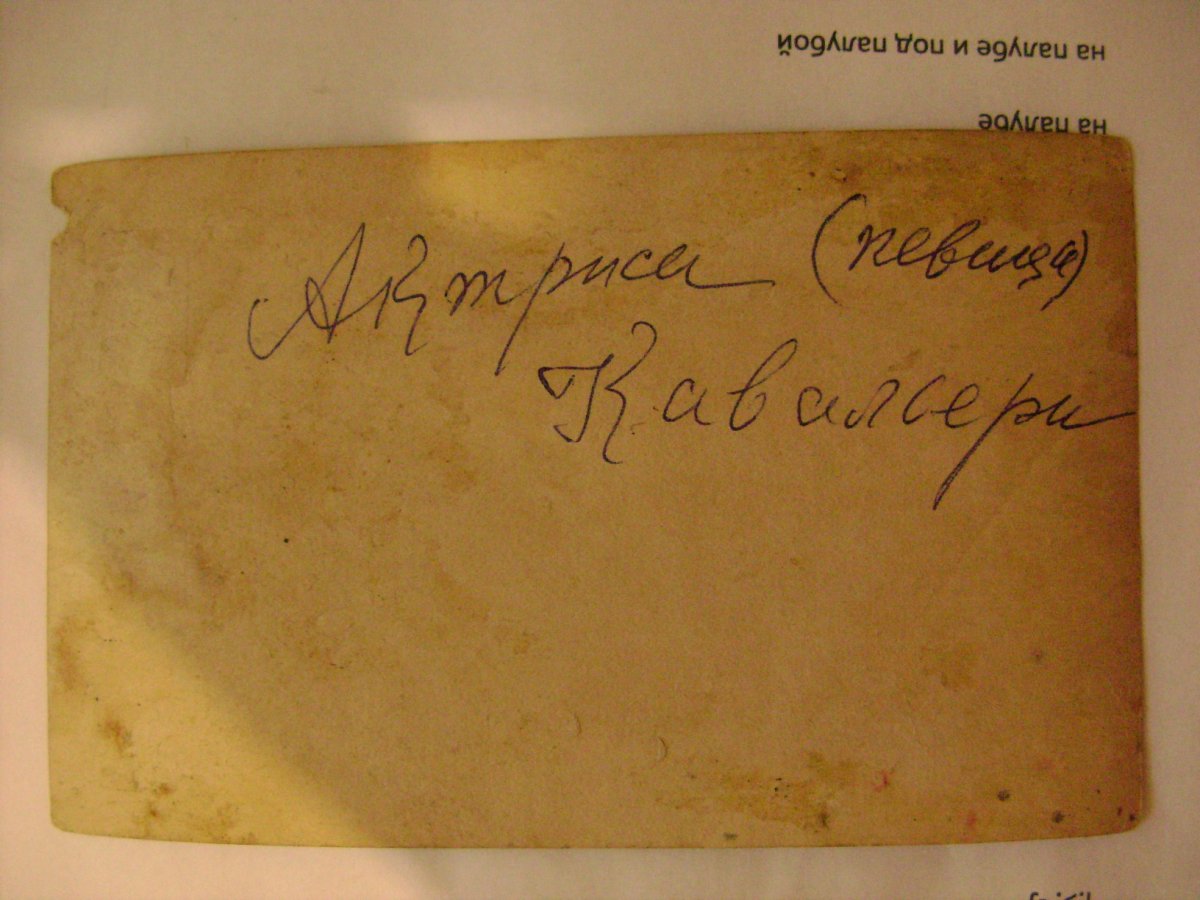 на палубе и под палубой
на палубе
Актриса (певица)
Кавальери